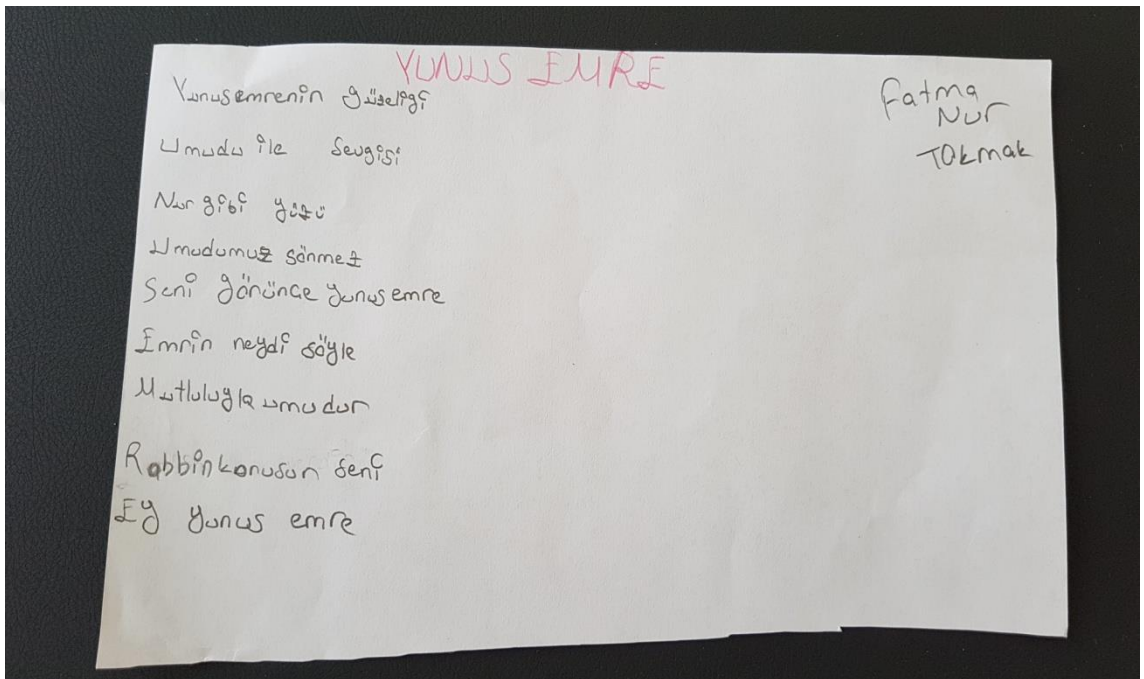 YUNUS EMRE
Fatma
Nur
Tokmak
Yunusemrenin güzeligi
Umudu ile sevgisi
Nur gibi yüzü
Umudumuz sönmez
Seni görünce yunus emre
Emrin neydi söyle
Mutlulugla umudur
Rabbin korusun seni
Ey yunus emre